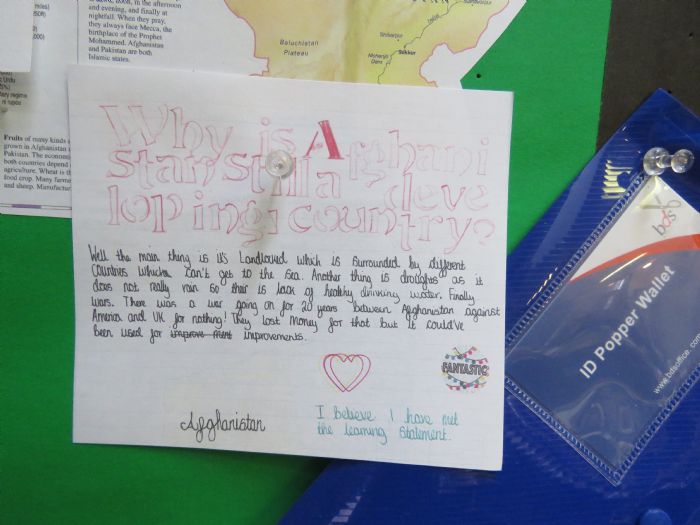 and evening, and finally at
nightfall. When they pray,
they always face Mecca, the
birthplace of the Prophet
Mohammed. Afghanistan
and Pakistan are both
Islamic states.
Baluchistan
Plateau
Shikarpur
Sukkur
Fruits of many kinds
grown in Afghanistan
Pakistan. The economi
both countries depend
agriculture. Wheat is th
food crop. Many farme
and sheep. Manufactur
Why is Afghani
stan still a deve
loping country?
Well the main thing is it's Landlocked which is surrounded by different
countries which can't get to the sea. Another thing is droughts as it
does not really rain so their is lack of healthy drinking water. Finally
wars. There was a war going on for 20 years between Afghanistan against
America and UK for nothing! They lost money for that but it could've
been used for improve ment improvements.
FANTASTIC
Afghanistan
I believe I have met
the learning statement.
bds
ID Popper Wallet
www.bdsoffice.com